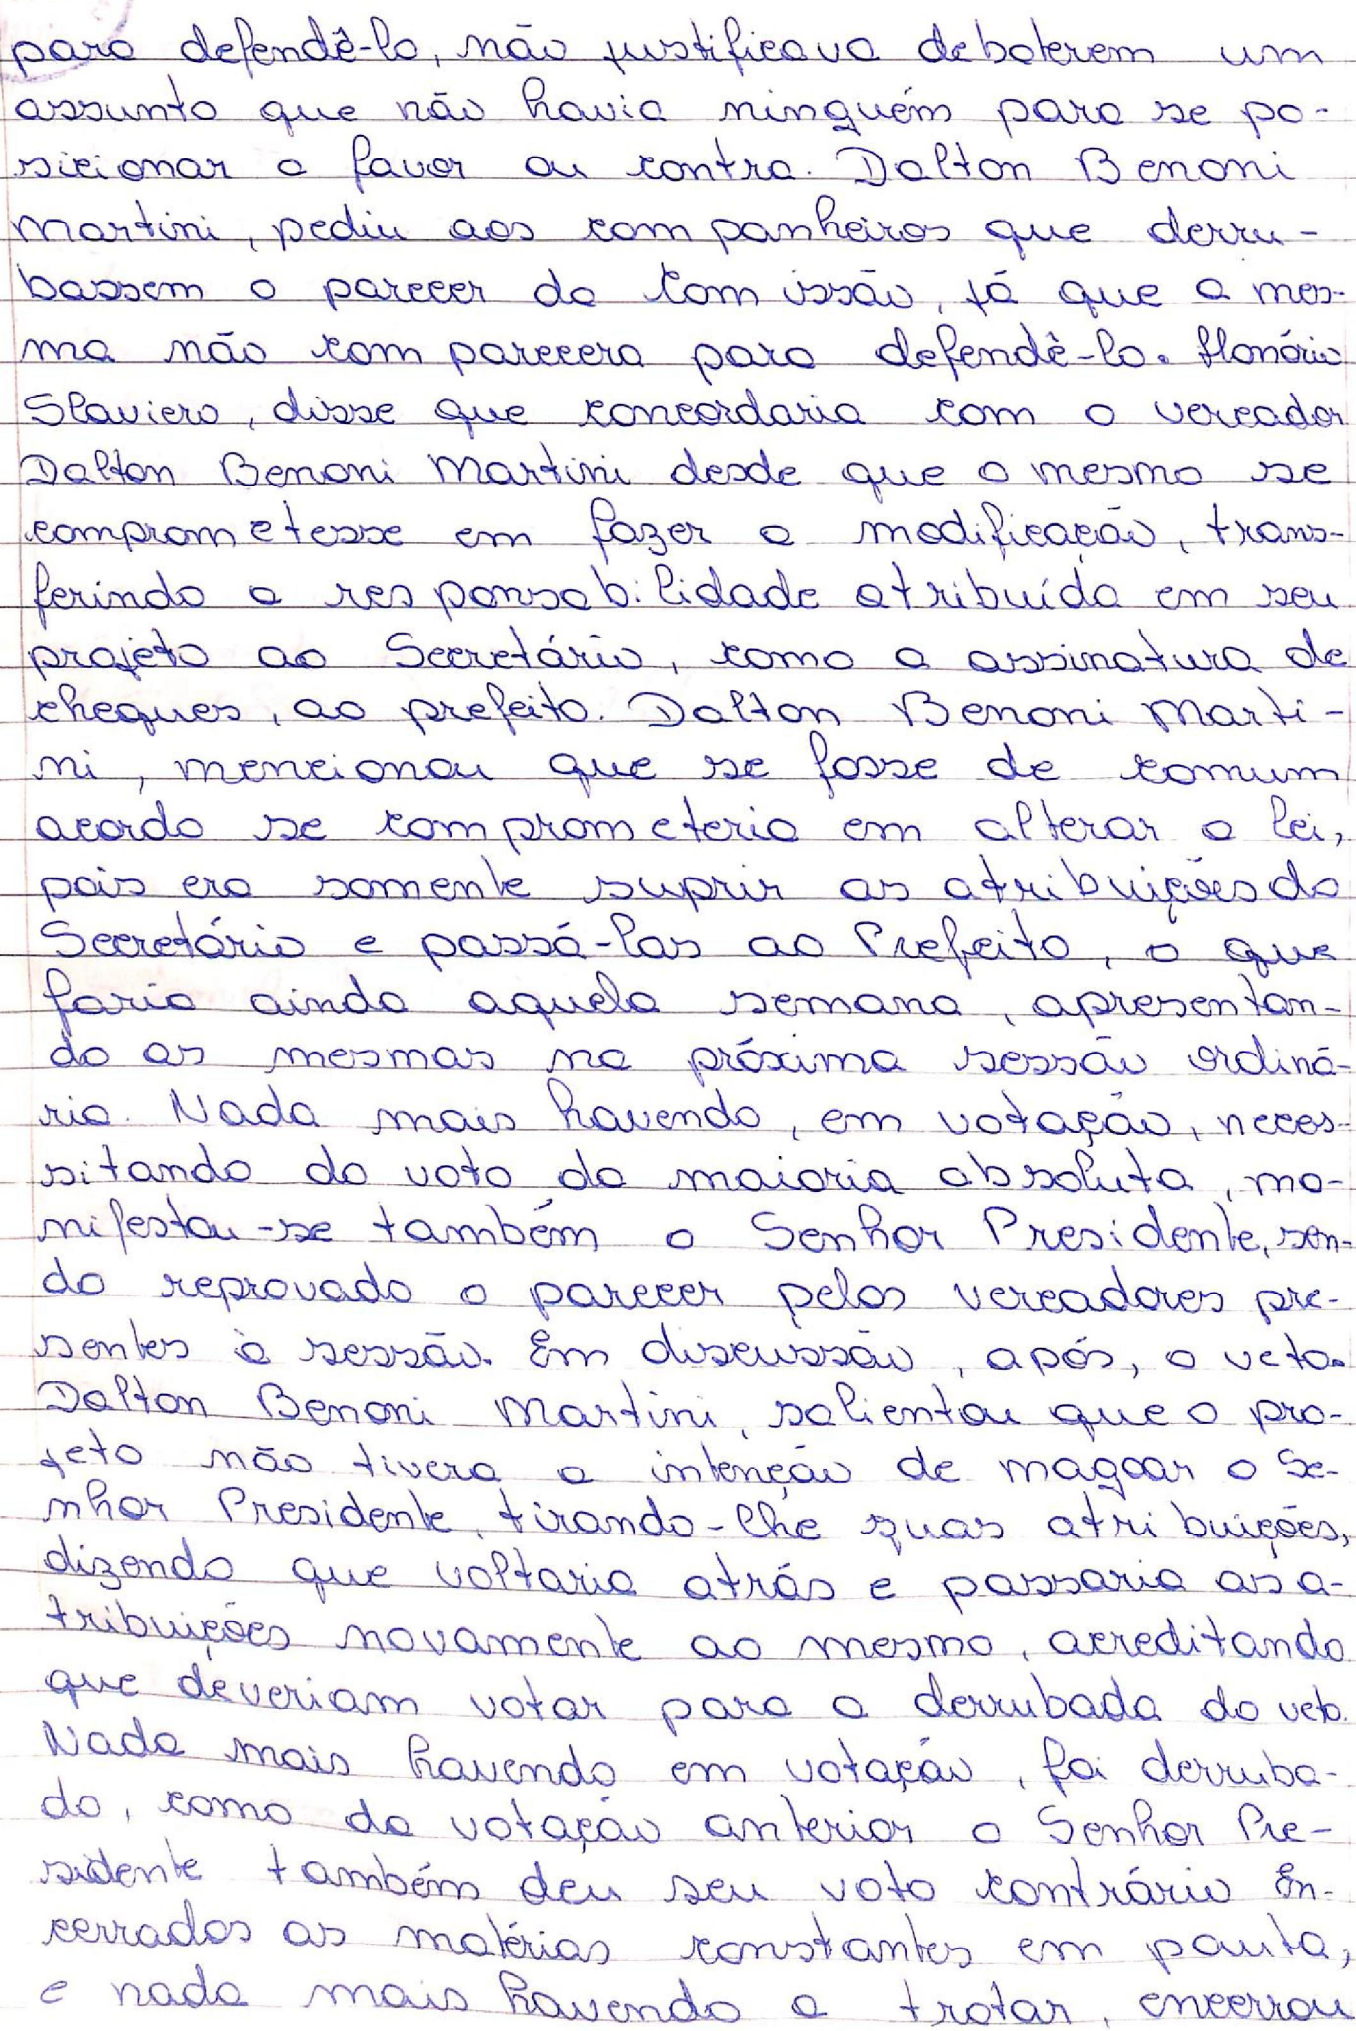 para defendê-lo, não justificava debaterem um
assunto que não havia ninguém para se po-
sicionar a favor ou contra. Dalton Benoni
Martini, pediu aos companheiros que derru-
bassem o parecer da Comissão, já que a mes-
ma não comparecera para defendê-lo. Honório
Slaviero, disse que concordaria com o vereador
Dalton Benoni Martini desde que o mesmo se
comprometesse em fazer a modificação, trans-
ferindo a responsabilidade atribuída em seu
projeto ao Secretário, como a assinatura de
cheques, ao prefeito. Dalton Benoni Marti-
ni, mencionou que se fosse de comum
acordo se comprometeria em alterar a lei,
pois era somente suprir as atribuições do
Secretário e passá-las ao Prefeito, o que
faria ainda aquela semana, apresentan-
do as mesmas na próxima sessão ordiná-
ria. Nada mais havendo, em votação, neces-
sitando do voto da maioria absoluta, ma-
nifestou-se também o Senhor Presidente, sen-
do reprovado o parecer pelos vereadores pre-
sentes à sessão. Em discussão, após, o veto.
Dalton Benoni Martini, salientou que o pro-
jeto não tivera a intenção de magoar o Se-
nhor Presidente, tirando-lhe suas atribuições,
dizendo que voltaria atrás e passaria as a-
tribuições novamente ao mesmo, acreditando
que deveriam votar para a derrubada do veto.
Nada mais havendo em votação, foi derruba-
do, como da votação anterior o Senhor Pre-
sidente também deu seu voto contrário En-
cerrados as matérias constantes em pauta,
e nada mais havendo a tratar, encerrou